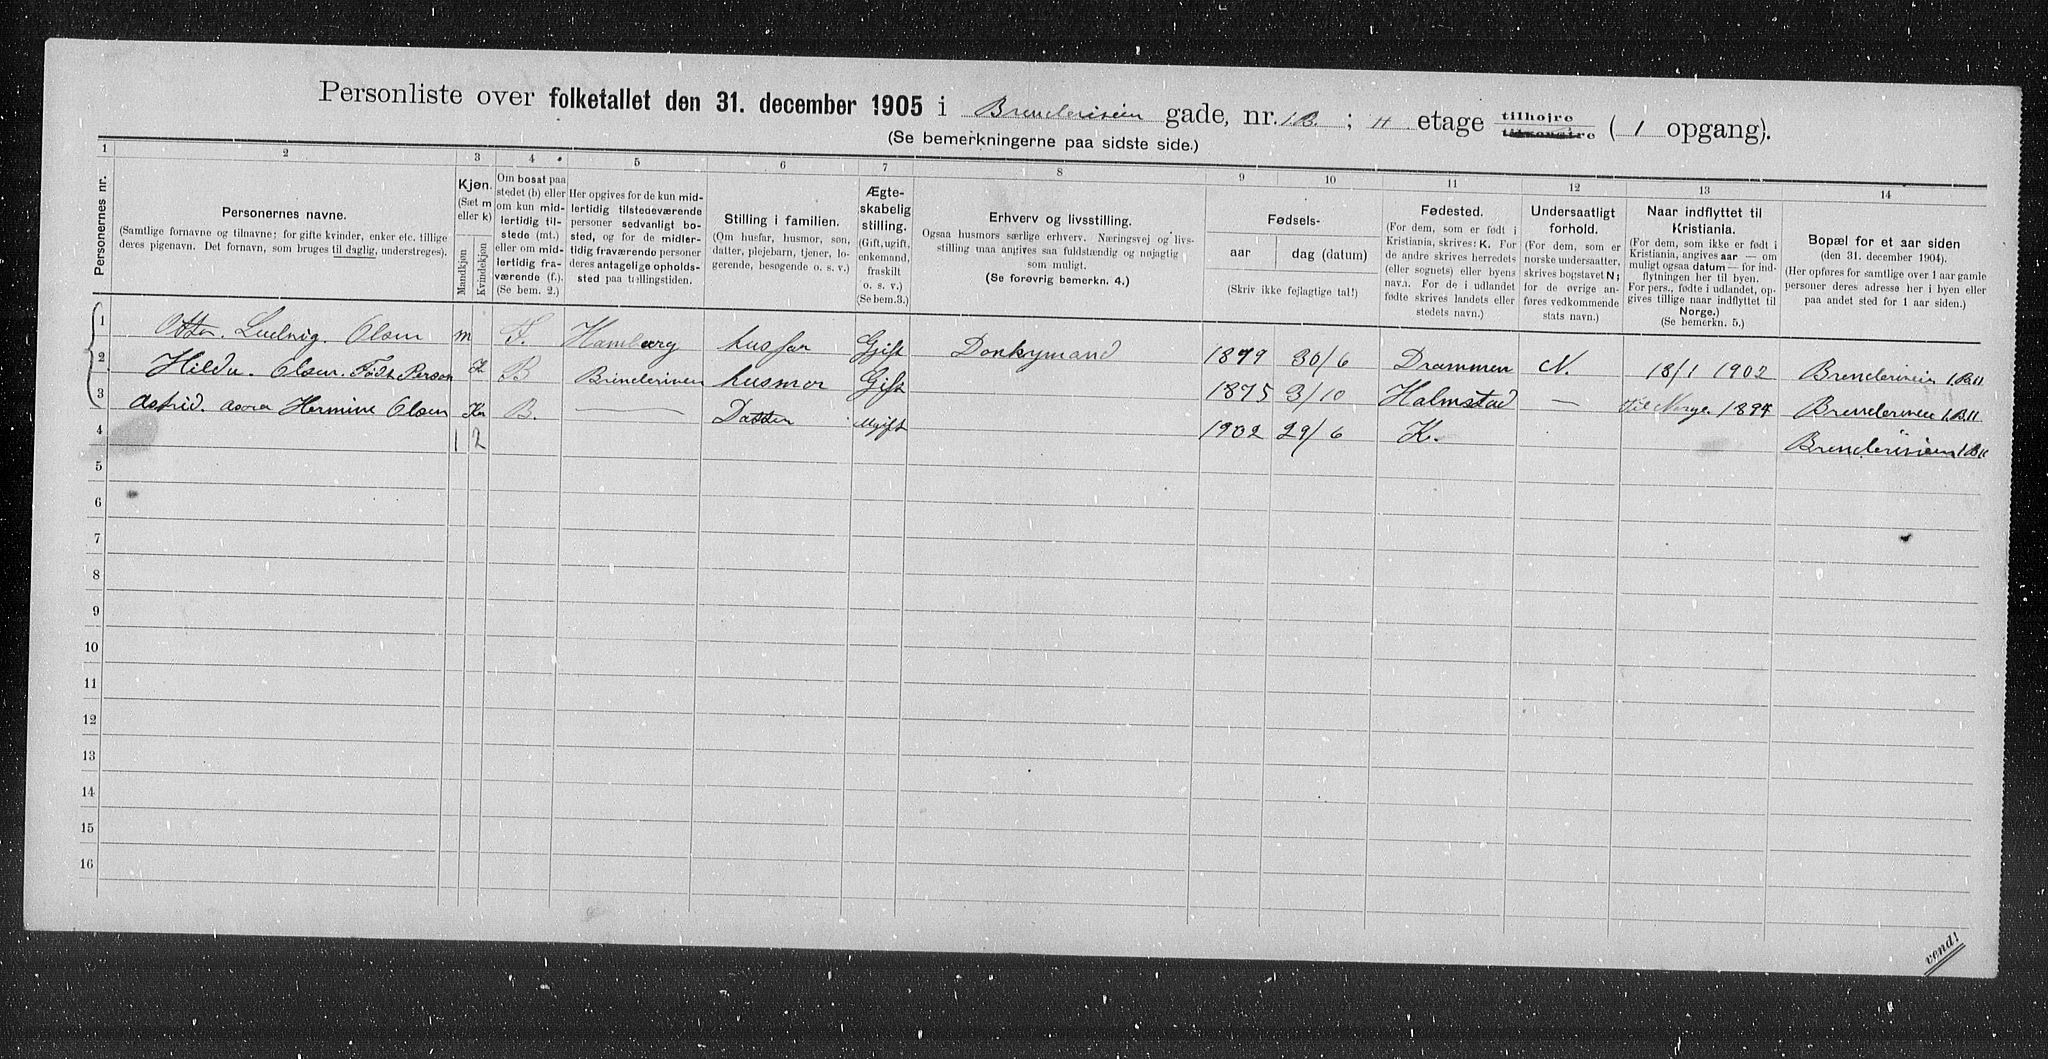 Personliste over folketallet den 31. december 1905 i Brenderiveien gade, nr. 1 B. ; II etage tilhøire tilvenstre ( 1 opgang).
(Se bemerkningerne paa sidste side.)
1 2 3 4 5 6 7 8 9 10 11 12 13 14
Personernes nr.
Personernes navne.
(Samtlige fornavne og tilnavne; for gifte kvinder, enker etc. tillige
deres pigenavn. Det fornavn, som bruges til daglig, understreges).
Kjøn.
(Sæt m
eller k)
Mandkjøn
Kvindekjøn
Om bosat paa
stedet (b) eller
om kun mid-
lertidig til-
stede (mt.)
eller om mid-
lertidig fra-
værende (f.).
(Se bem. 2.)
Her opgives for de kun mid-
lertidig tilstedeværende
personer sedvanligt bo-
sted, og for de midler-
tidig fraværende personer
deres antagelige opholds-
sted paa tællingstiden.
Stilling i familien.
(Om husfar, husmor, søn,
datter, plejebarn, tjener, lo-
gerende, besøgende o. s. v.)
Ægte-
skabelig
stilling.
(Gift, ugift,
enkemand,
fraskilt
o. s. v.)
(Se bem. 3.)
Erhverv og livsstilling.
Ogsaa husmors særlige erhverv. Næringsvej og livs-
stilling maa angives saa fuldstændig og nøjagtig
som muligt.
(Se forøvrig bemerkn. 4.)
Fødsels-
aar dag (datum)
(Skriv ikke fejlagtige tal!)
Fødested.
(For dem, som er født i
Kristiania, skrives: K. For
de andre skrives herredets
(eller sognets) eller byens
navn. For de i udlandet
fødte skrives landets eller
stedets navn.)
Undersaatligt
forhold.
(For dem, som er
norske undersaatter,
skrives bogstavet N;
for de øvrige an-
føres vedkommende
stats navn.)
Naar indflyttet til
Kristiania.
(For dem, som ikke er født i
Kristiania, angives aar — om
muligt ogsaa datum — for ind-
flytningen her til byen.
For pers., fødte i udlandet, op-
gives tillige naar indflyttet til
Norge.)
(Se bemerkn. 5.)
Bopæl for et aar siden
(den 31. december 1904).
(Her opføres for samtlige over 1 aar gamle
personer deres adresse her i byen eller
paa andet sted for 1 aar siden.)
1 Otto. Ludvig. Olsen m F. Hamborg husfar Gift Donkymand 1879 30/6 Drammen N. 18/1 1902 Brenderivein 1.B.II
2 Hilda. Olsen. Født Person K B Brenderiveien husmor Gift 1875 3/10 Halmstad — til Norge 1894 Brenderiveie 1.B.II
3 Astrid. Hermine Olsen K B. — Datter Ugift 1902 29/6 K. Brenderivein 1.B.II
4 1 2
5
6
7
8
9
10
11
12
13
14
15
16
vend!